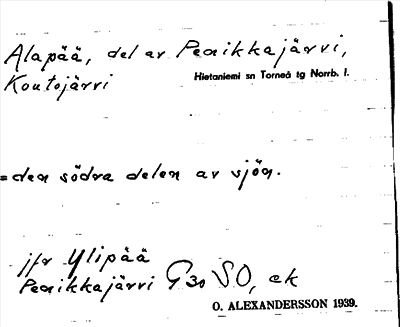 Alapää, del av Peaikkajärvi,
Koutojärvi
Hietaniemi sn Torneå tg Norrb. l.
= den södra delen av sjön.
jfr Ylipää
Peaikkajärvi G 30 SO, ek
O. ALEXANDERSSON 1939.